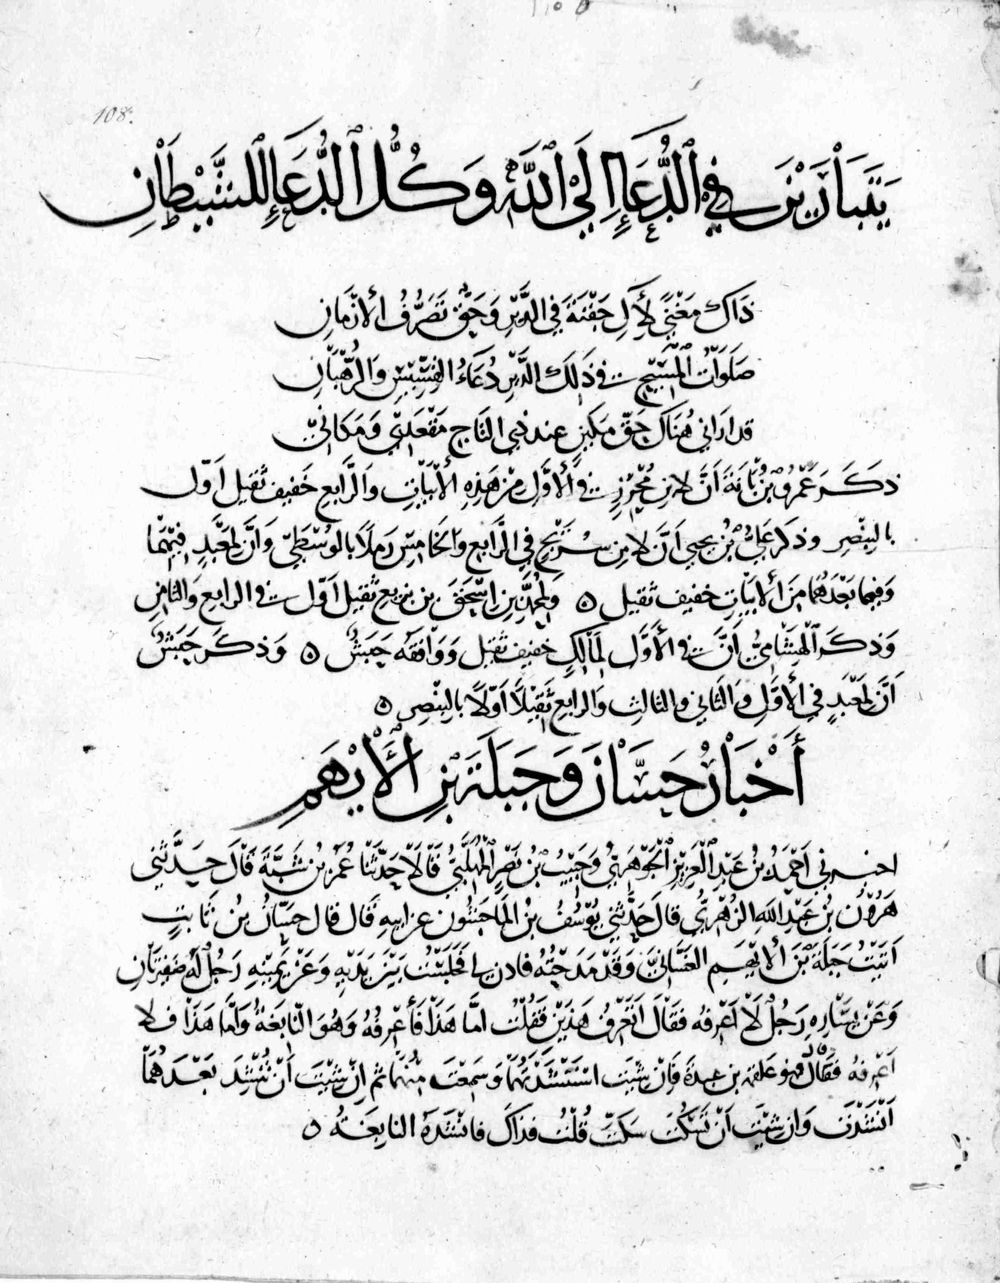 108.
يَتَبَارَيْنَ فِي الدُّعَاءِ إِلَى اللّٰهِ وَكُلُّ الدُّعَاءِ لِلشَّيْطَانِ
ذَاكَ مَغْنًى لِآلِ جَفْنَةَ فِي الدَّيْرِ وَحَقّ تَصَرُّفُ الأَزْمَانِ
صَلَوَاتُ الْمَسِيْحِ فِي ذَلِكَ الدَّيْرِ دُعَاءُ القِسِّيْسِ وَالرُّهْبَانِ
قد اَرَانِي هُنَاكَ حَقّ مَكِينٍ عند ذي التَّاجِ مَقْعَدِيْ وَمَكَانِيْ
ذكَرَ عَمْرُو بْنُ بَانَةَ اَنَّ لابنِ مُحْرِزٍ فِي الأَوَّلِ مِنْ هَذِهِ الأَبْيَاتِ وَالرَّابِعِ خَفِيف ثَقِيل اَوّل
بالبِنْصِر وذكَر عَلِيُّ بْنُ يحيى اَنَّ لابن سُرَيْجٍ فِي الرَّابِعِ وَالخَامِسِ رَمَلًا بالوُسْطَى وَاَنَّ لِمَعْبَدٍ فِيْهِمَا
وَفِيمَا بَعْدَهُمَا مِنَ الأَبْيَاتِ خَفِيف ثقيل ٥ وَلِمُحَمَّدِ بن اِسْحَقَ بن بزيع ثقيل اَوّل في الرابع وَالثَّامِن
وَذكَرَ الْهِشَامِيُّ اَنَّ فِي الأَوَّل لِمَالِكٍ خفيف ثقيل وَوَافَقَهُ حَبَشٌ ٥ وَذكَرَ حَبَشٌ
اَنَّ لِمَعْبَدٍ فِي الأَوَّلِ وَالثَّانِي وَالثالث وَالرابِع ثَقِيْلًا اَوّلًا بالبِنْصِر ٥
أَخْبَارُ حَسَّانَ وَجَبَلَةَ بْنِ الأَيْهَمِ
اخبرني اَحْمَدُ بْنُ عَبْدِ الْعَزِيْزِ الْجَوْهَرِيُّ وَحَبِيْبُ بْنُ نَصْرٍ الْمُهَلَّبِيُّ قَالَا حَدَّثَنَا عُمَرُ بْنُ شَبَّةَ قَالَ حَدَّثَنِي
هٰرُوْنُ بْنُ عَبْدِ اللهِ الزُهْرِيُّ قال حَدَّثَنِي يُوْسُفُ بْنُ المَاجِشُون عن اَبِيهِ قَالَ قال حَسَّانُ بْنُ ثَابِتٍ
اَتَيْتُ جَبَلَةَ بْنَ الأَيْهَمِ الغَسَّانِيَّ وَقَدْ مَدَحْتُهُ فاذن لي فَجَلَسْتُ بَيْنَ يَدَيْهِ وَعَنْ يَمِيْنِهِ رَجُلٌ لَهُ ضَفِيرَتَانِ
وَعَنْ يَسَارِهِ رَجُلٌ لَا اَعْرِفه فقَالَ اَتَعْرِفُ هَذَيْنِ فَقُلْتُ اَمَّا هَذَا فَأَعْرِفُهُ وَهُوَ النَّابِغَةُ وَاَمَّا هَذَا فَلا
اَعْرِفهُ فَقَالَ هو علقمة بن عبدة فَاِنْ شِئْتَ اسْتَنْشَدْتَهُمَا وَسَمِعْتَ مِنْهُمَا ثم اِنْ شِئْتَ اَنْ تُنْشِدَ بَعْدَهُمَا
اَنْشَدْتَ وَاِنْ شِئْتَ اَنْ تَسْكُتَ سَكَتَّ قُلْتُ فَذَاكَ فَاَنْشَدَهُ النابِغَةُ ٥